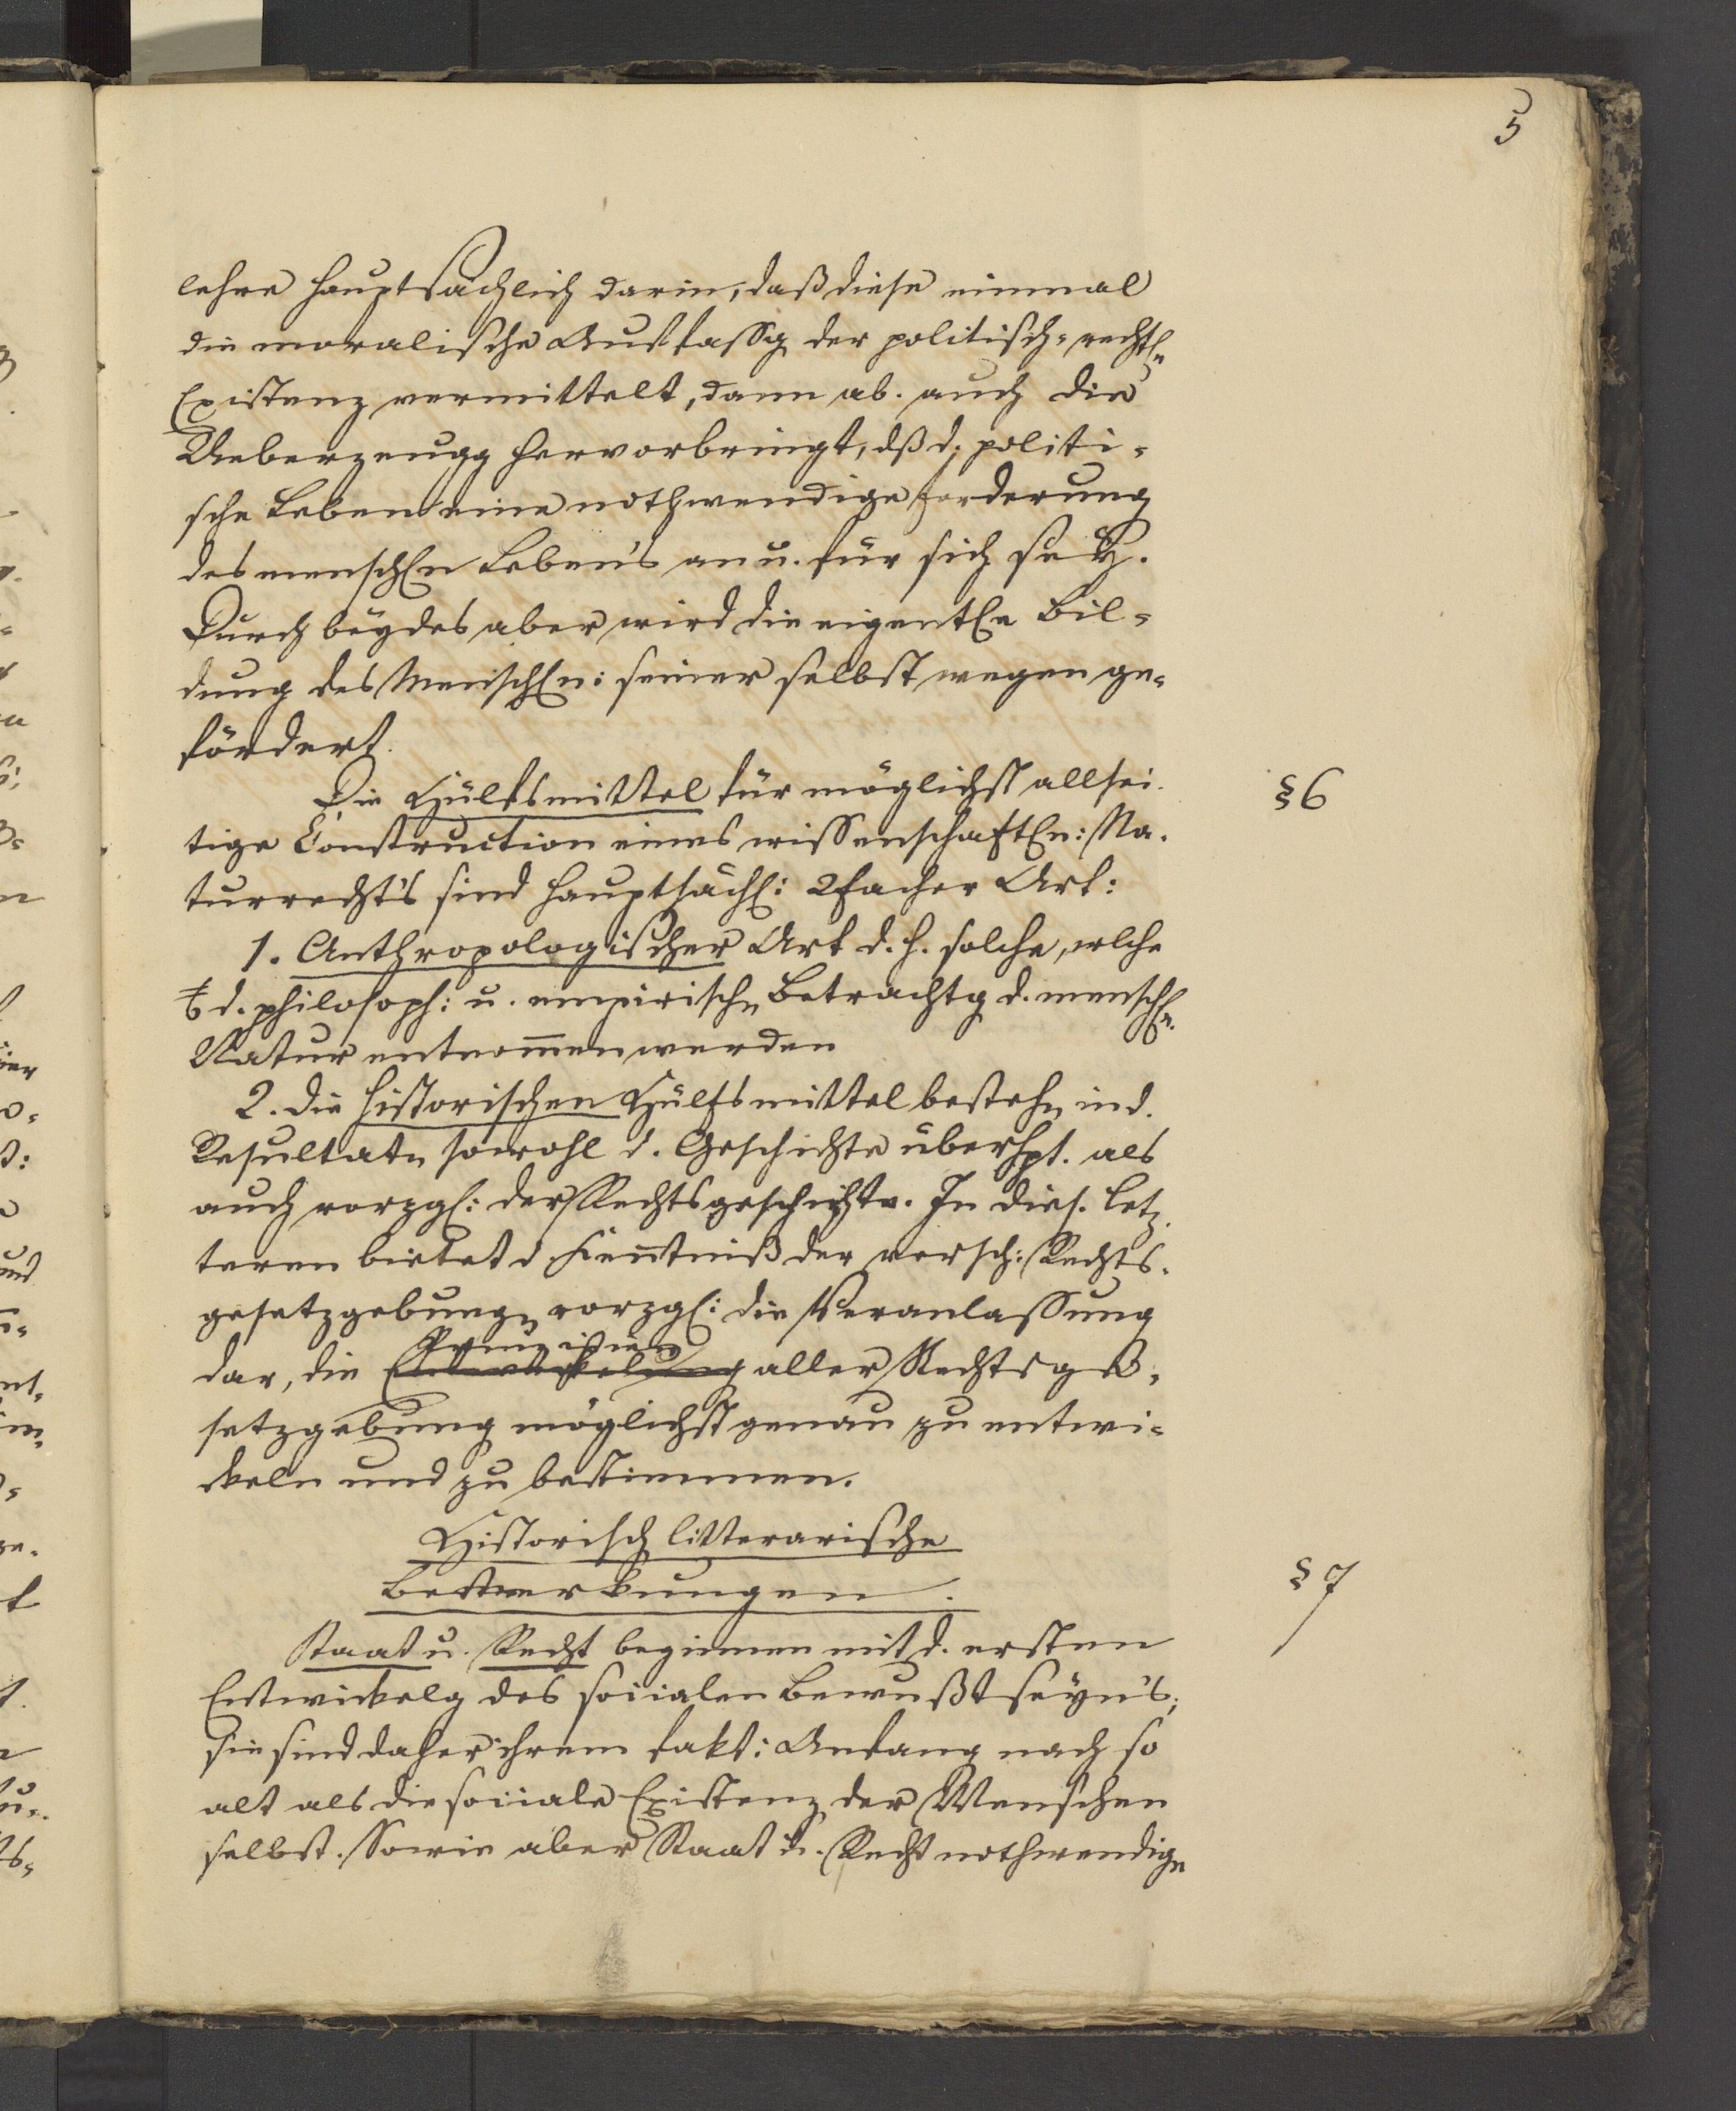 5
lehre hauptsächlich darin, daß diese einmal
die moralische Auffassg der politisch-rechtln
Existenz vermittelt, dann ab. auch die
Ueberzeugg hervorbringt, dß d. politi-
sche Leben eine nothwendige Forderung
des menschln Leben's an u. für sich sey.
Durch beydes aber wird die eigentle Bil-
dung des Menschn: seiner selbst wegen ge-
fördert.
Die Hülfsmittel für möglichst allsei-
§ 6
tige Construction eines wissenschaftln: Na-
turrecht's sind hauptsächl: 2facher Art:
1. Anthropologischer Art d. h. solche, wlche
d. philosoph: u. empirischn Betrachtg d. menschln.
Natur entnommen werden
2. Die historischen Hülfsmittel bestehn in d.
Resultatn sowohl d. Geschichte überhpt. als
auch vorzgl: der Rechtsgeschichte. In dies. letz-
teren bietet d Kenntniß der versch: Rechts-
gesetzgebungn vorzgl: die Veranlassung
Principien
dar, die Entwickelung aller Rechtsge-
setzgebung möglichst genau zu entwi-
ckeln und zu bestimmen.
Historisch litterarische
Bemerkungen.
§ 7
Staat u. Recht beginnen mit d. ersten
Entwickelg des socialen Bewußtseyn's;
sie sind daher ihrem fakt: Anfang nach so
alt als die sociale Existenz der Menschen
selbst. Sowie aber Staat u. Recht nothwendign